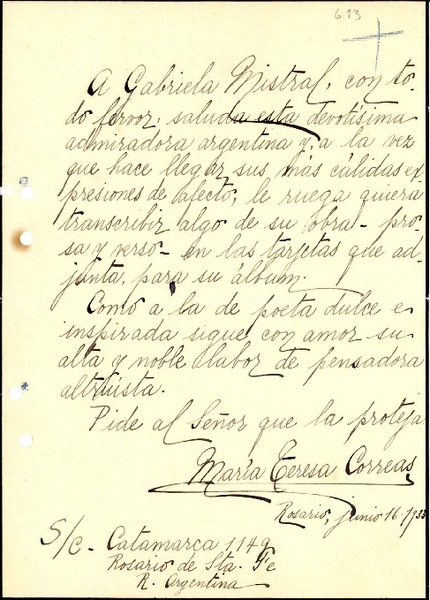 613
A Gabriela Mistral, con to-
do fervor, saluda esta devotísima
admiradora argentina y, a la vez
que hace llegar sus más cálidas ex-
presiones de afecto, le ruega quiera
transcribir algo de su obra - pro-
sa y verso - en las tarjetas que ad-
junta, para su álbum.
Como a la de poeta dulce e
inspirada sigue con amor su
alta y noble labor de pensadora
altruista.
Pide al Señor que la proteja
María Teresa Correas
Rosario, junio 16-1933
S/c - Catamarca 1149
Rosario de Sta. Fe
R. Argentina